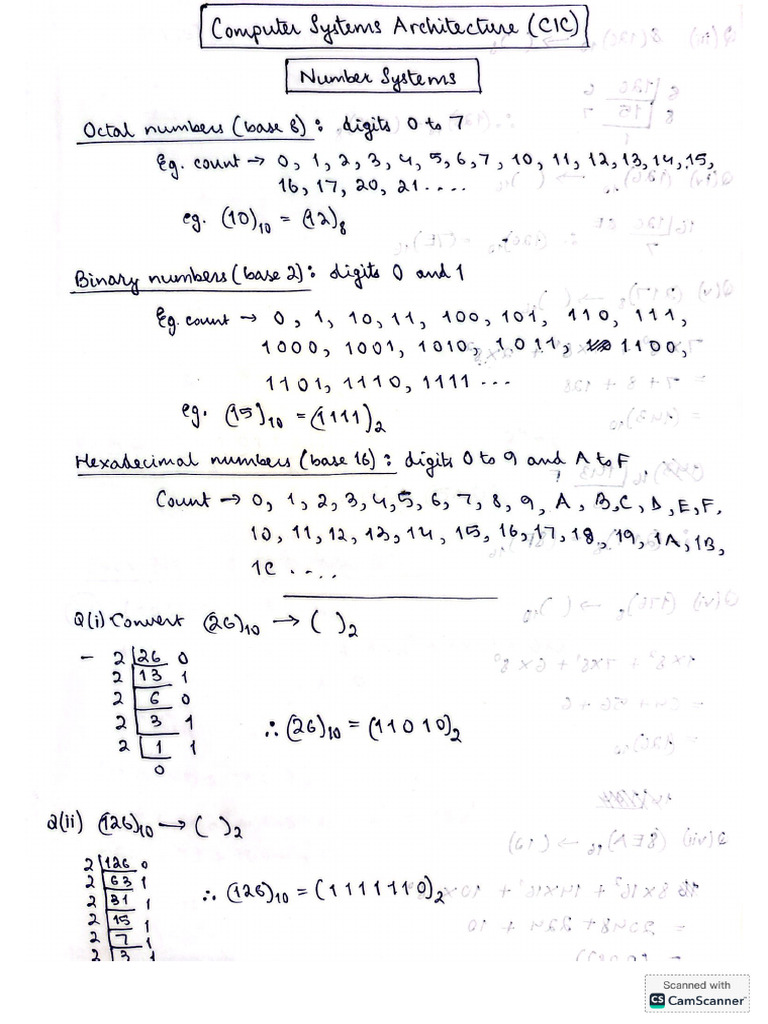 Computer Systems Architecture (CIC)
Number Systems
Octal numbers (base 8): digits 0 to 7
Eg. count → 0, 1, 2, 3, 4, 5, 6, 7, 10, 11, 12, 13, 14, 15,
16, 17, 20, 21 ....
eg. (10)₁₀ = (12)₈
Binary numbers (base 2): digits 0 and 1
Eg. count → 0, 1, 10, 11, 100, 101, 110, 111,
1000, 1001, 1010, 1011, 1100,
1101, 1110, 1111 ...
eg. (15)₁₀ = (1111)₂
Hexadecimal numbers (base 16): digits 0 to 9 and A to F
Count → 0, 1, 2, 3, 4, 5, 6, 7, 8, 9, A, B, C, D, E, F,
10, 11, 12, 13, 14, 15, 16, 17, 18, 19, 1A, 1B,
1C ....
Q(i) Convert (26)₁₀ → ( )₂
- 2 | 26 0
2 | 13 1
2 | 6 0
2 | 3 1
2 | 1 1
0
∴ (26)₁₀ = (11010)₂
Q(ii) (126)₁₀ → ( )₂
2 | 126 0
2 | 63 1
2 | 31 1
2 | 15 1
2 | 7 1
2 | 3 1
∴ (126)₁₀ = (1111110)₂
Scanned with
CS CamScanner